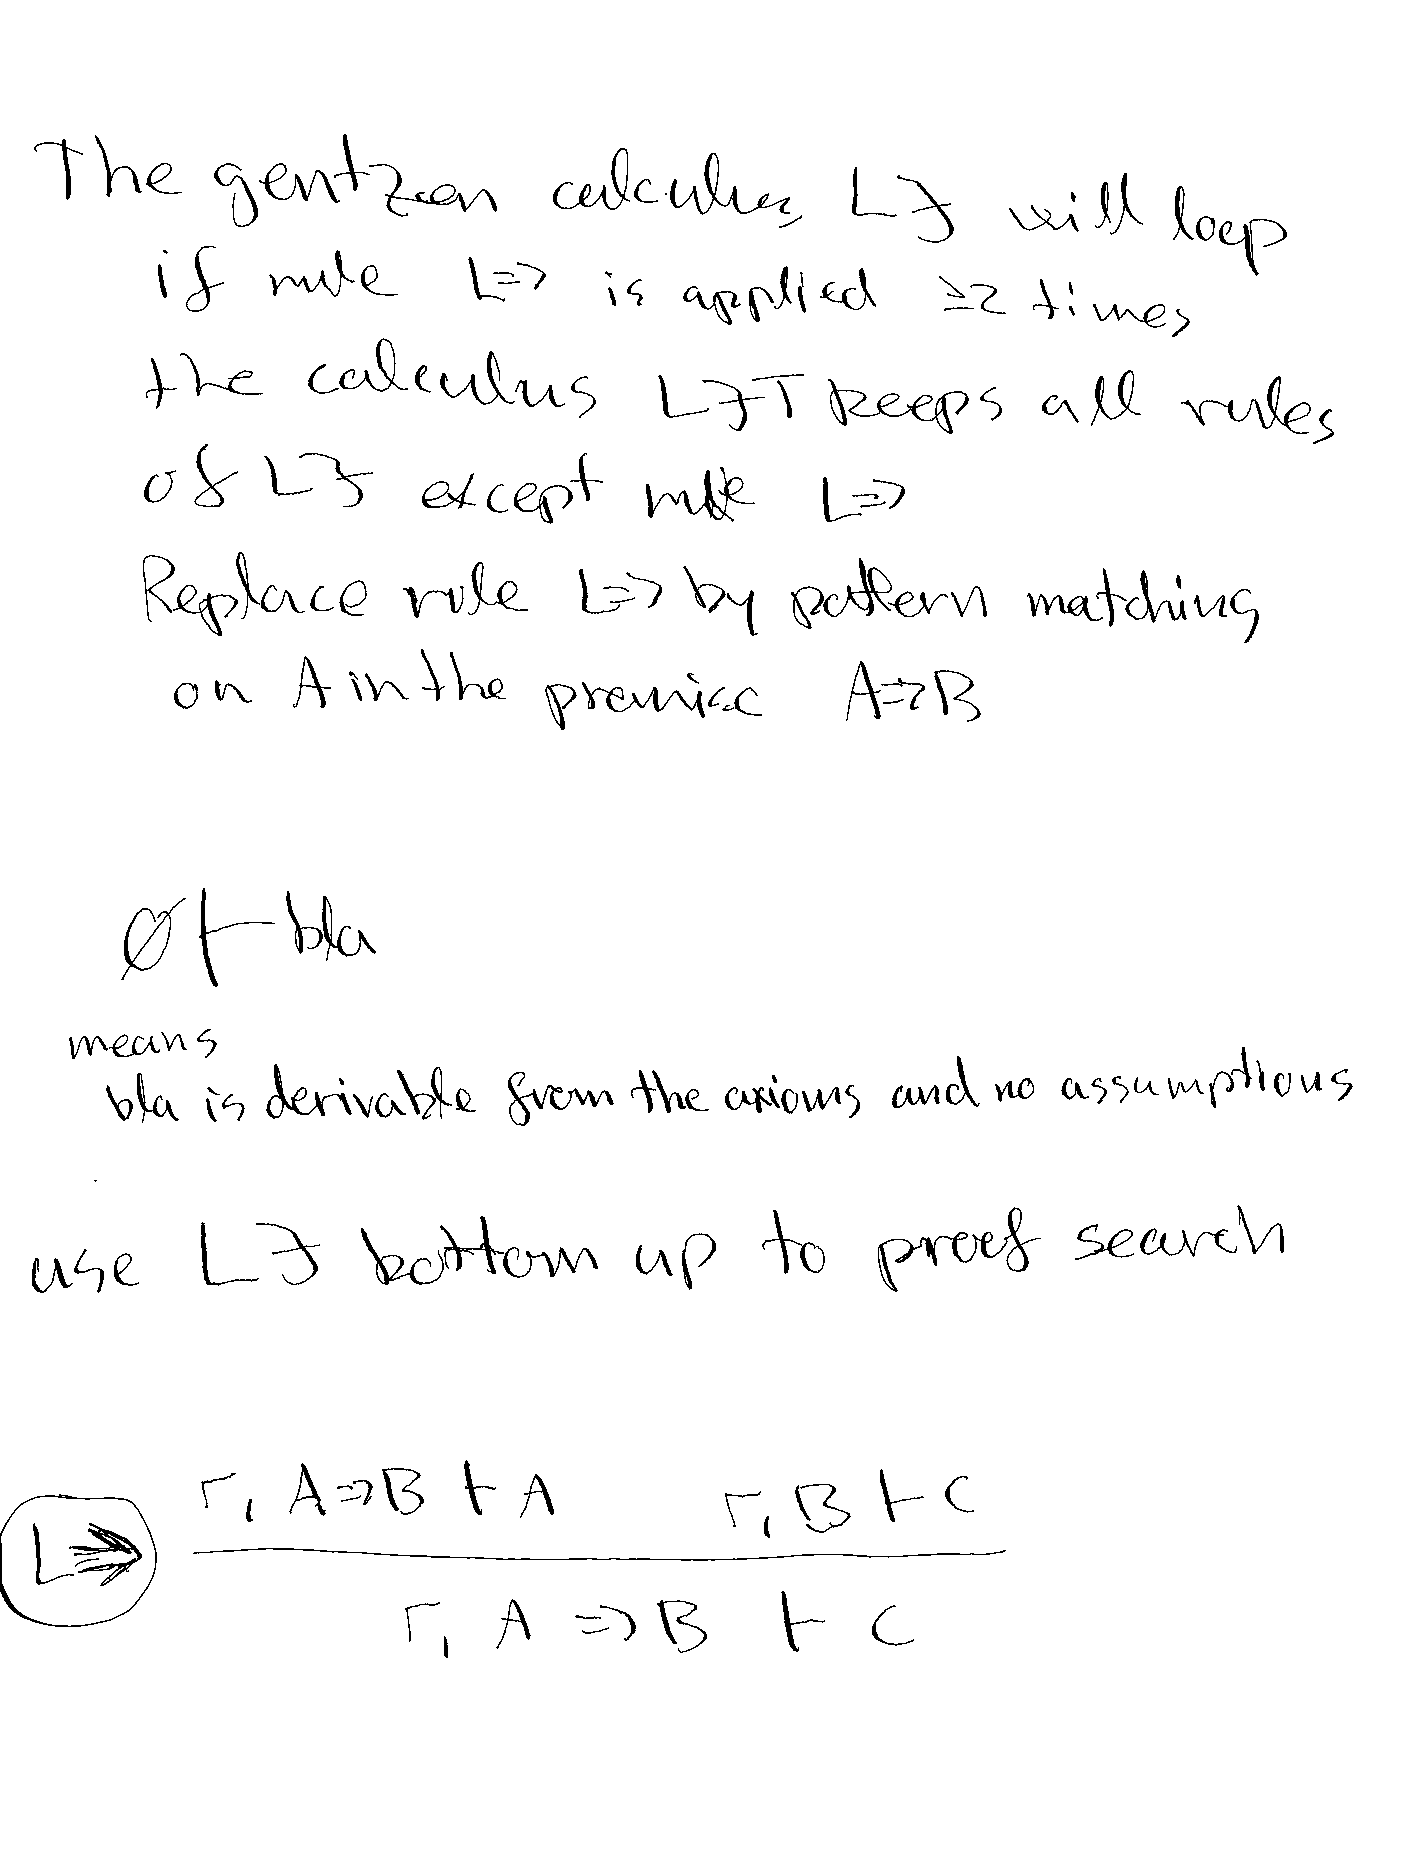 The gentzen calculus LJ will loop
if rule L=> is applied ≥2 times
the calculus LJT keeps all rules
of LJ except rule L=>
Replace rule L=> by pattern matching
on A in the premise A=>B
∅ ⊢ bla
means
bla is derivable from the axioms and no assumptions
use LJ bottom up to proof search
Γ, A=>B ⊢ A Γ, B ⊢ C
L=>
Γ, A => B ⊢ C